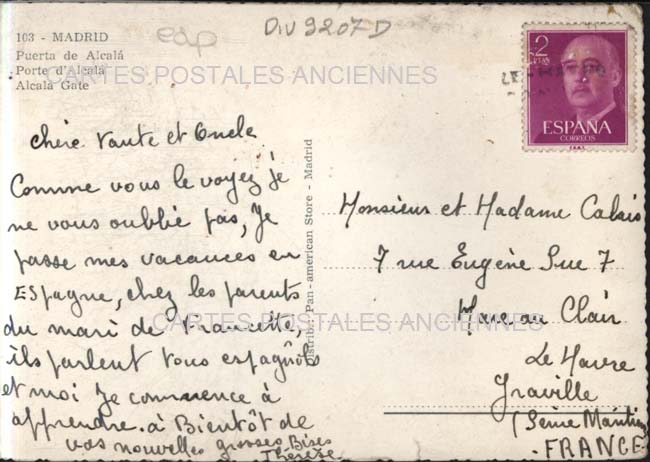 103 - MADRID
Puerta de Alcalá
Porte d'Alcalá
Alcalá Gate
eap
DIV 9207 D
CARTES POSTALES ANCIENNES
chère Tante et Oncle
Comme vous le voyez je
ne vous oublie pas, Je
passe mes vacances en
Espagne, chez les parents
du mari de Francette,
ils parlent tous espagnols
et moi Je commence à
apprendre. à Bientôt de
vos nouvelles grosses Bises
Thérèse
Distrib. Pan-american Store - Madrid
2
PTAS
ESPAÑA
CORREOS
Monsieur et Madame Calais
7 rue Eugène Sue 7
Mare au Clair
Le Havre
Graville
(Seine Maritime
FRANCE
CARTES POSTALES ANCIENNES